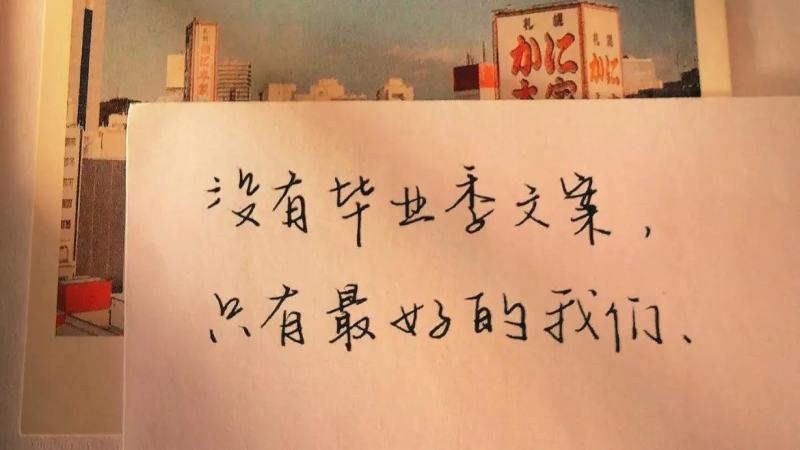 札幌
かに
本家
札幌
かに
札幌
かに本家
没有毕业季文案，
只有最好的我们、